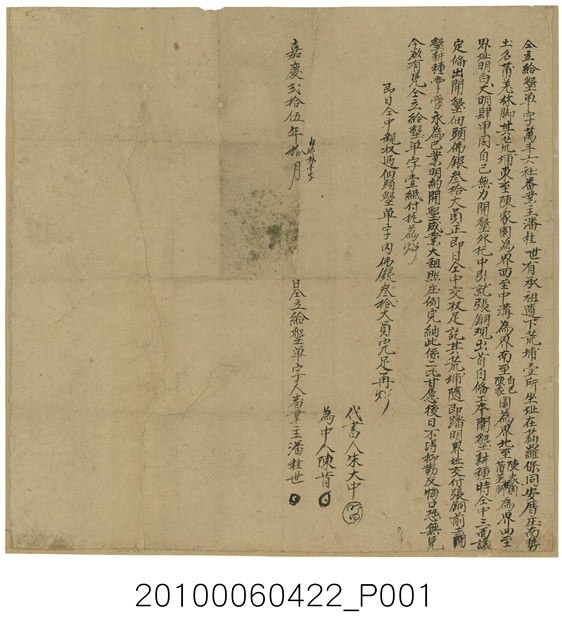 仝立給墾單字萬斗六社番業主潘桂世有承祖遺下荒埔壹所坐址在猫羅保同安厝庄南勢
土名莆羌林脚其荒埔東至陳家園為界西至中溝為界南至自己陳家園為界北至陳家園為界四至
界址明白大明肆甲因自己無力開墾外托中引就張銅觀出首自俻工本開墾耕種時仝中三面議
定俻出開墾佃頭佛銀叁拾大員正即日仝中交收足訖其荒埔隨即踏明界址交付張銅前去開
墾耕種掌管永為己業明約開墾成業大租照庄例完納此係二比甘愿後日不得抑勒反悔口恐無憑
今欲有憑仝立給墾單字壹紙付执為炤
即日仝中親收過佃頭墾單字內佛銀叁拾大員完足再炤
代書人朱大中
為中人陳肯
嘉慶弍拾伍年拾月 日仝立給墾單字人番業主潘桂世
20100060422_P001